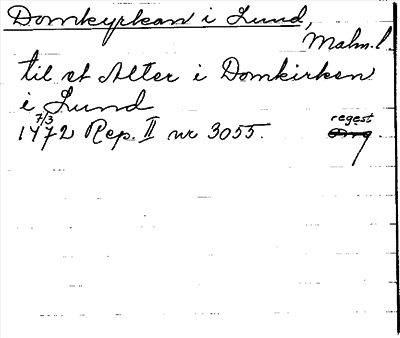 Domkyrkan i Lund,
Malm.l.
til et Alter i Domkirken
i Lund
7/3
1472 Rep. II nr 3055.
regest